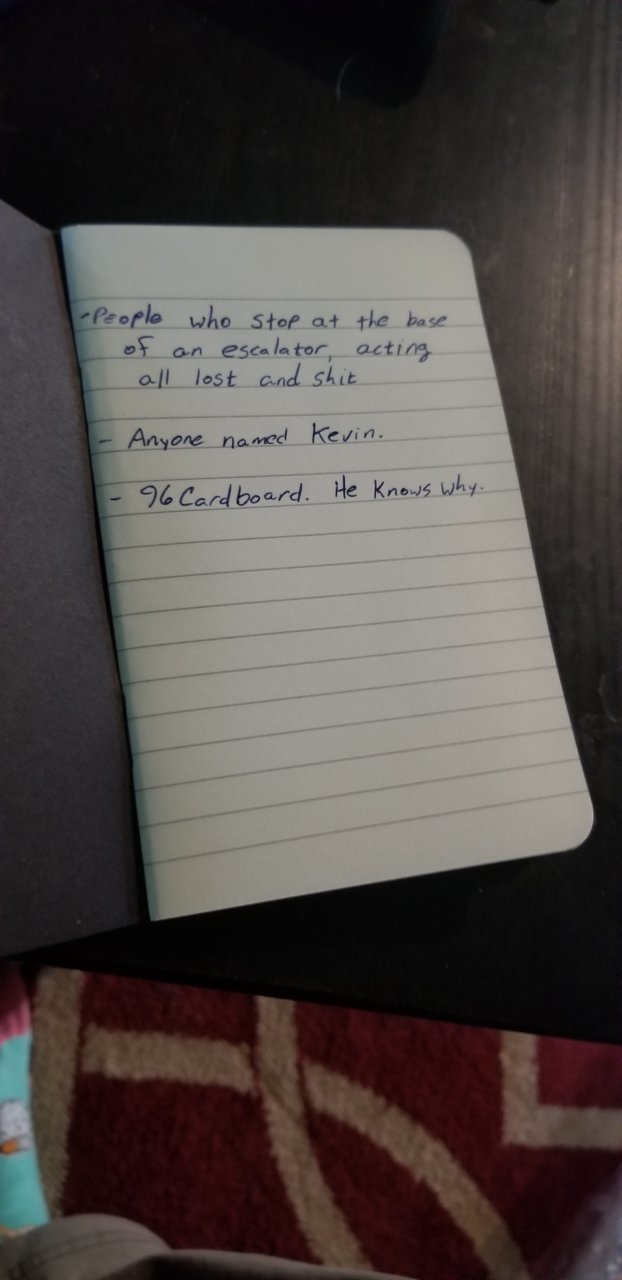 -People who stop at the base
of an escalator, acting
all lost and shit
- Anyone named Kevin.
- 96Cardboard. He knows why.